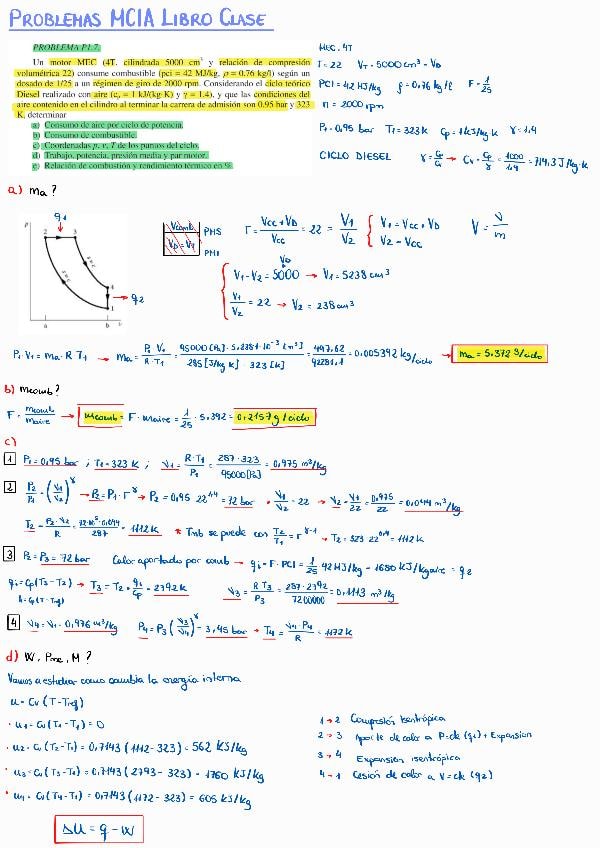 PROBLEMAS MCIA LIBRO CLASE
PROBLEMA P1.7.
Un motor MEC (4T, cilindrada 5000 cm³ y relación de compresión
volumétrica 22) consume combustible (pci = 42 MJ/kg, ρ = 0.76 kg/l) según un
dosado de 1/25 a un régimen de giro de 2000 rpm. Considerando el ciclo teórico
Diesel realizado con aire (cp = 1 kJ/(kg·K) y γ = 1.4), y que las condiciones del
aire contenido en el cilindro al terminar la carrera de admisión son 0.95 bar y 323
K, determinar
a) Consumo de aire por ciclo de potencia.
b) Consumo de combustible.
c) Coordenadas p, v, T de los puntos del ciclo.
d) Trabajo, potencia, presión media y par motor.
e) Relación de combustión y rendimiento térmico en %.
MEC. 4T
Γ = 22 VT = 5000 cm³ = VD
PCI = 42 MJ/kg ρ = 0,76 kg/l F = 1/25
n = 2000 rpm
P1 = 0,95 bar T1 = 323 K Cp = 1 kJ/kg K γ = 1.4
CICLO DIESEL γ = Cp/Cv → Cv = Cp/γ = 1000/1.4 = 714,3 J/kg·K
a) ma?
q1
P
2 3
4
1
q2
a b v
Vcomb
VD = VT
PMS
PMI
Γ = (Vcc + VD)/Vcc = 22 = V1/V2 { V1 = Vcc + VD
V2 = Vcc
V = V/m
VD
V1 - V2 = 5000 → V1 = 5238 cm³
V1/V2 = 22 → V2 = 238 cm³
P1·V1 = ma·R T1 → ma = P1·V1/R·T1 = 95000 [Pa]·5,238·10⁻³ [m³]/285 [J/kg K]·323 [K] = 497,62/92281,1 = 0.005392 kg/ciclo → ma = 5.372 g/ciclo
b) mcomb?
F = mcomb/maire → mcomb = F·maire = 1/25·5.392 = 0,2157 g/ciclo
c)
1 P1 = 0,95 bar ; T1 = 323 K ; v1 = R·T1/P1 = 287·323/95000 [Pa] = 0,975 m³/kg
2 P2/P1 = (V1/V2)^γ → P2 = P1·Γ^γ → P2 = 0,95·22^1,4 = 72 bar · V1/V2 = 22 → V2 = V1/22 = 0,975/22 = 0,044 m³/kg
T2 = P2·V2/R = 72·10⁵·0,044/287 = 1112 K * Tmb se puede con T2/T1 = Γ^γ-1 → T2 = 323·22^0,4 = 1112 K
3 P2 = P3 = 72 bar Calor aportado por comb → q1 = F·PCI = 1/25 42 MJ/kg = 1680 KJ/kg aire = q2
q1 = Cp (T3 - T2) → T3 = T2 + q1/Cp = 2792 K V3 = R T3/P3 = 287·2792/7200000 = 0,1113 m³/kg
h = Cp (T - Tref)
4 V4 = V1 = 0,976 m³/kg P4 = P3 (V3/V4)^γ = 3,45 bar → T4 = V4·P4/R = 1172 K
d) W, Pme, M?
Vamos a estudiar como cambia la energía interna
u = Cv (T - Tref)
· u1 = Cv (T1 - T1) = 0
· u2 = Cv (T2 - T1) = 0,7143 (1112 - 323) = 562 KJ/kg
· u3 = Cv (T3 - T1) = 0,7143 (2793 - 323) = 1760 KJ/kg
· u4 = Cv (T4 - T1) = 0,7143 (1172 - 323) = 605 KJ/kg
1 → 2 Compresión isentrópica
2 → 3 Aporte de calor a P=ck (q1) + Expansion
3 → 4 Expansión isentrópica
4 → 1 Cesión de calor a V=ck (q2)
ΔU = q - W